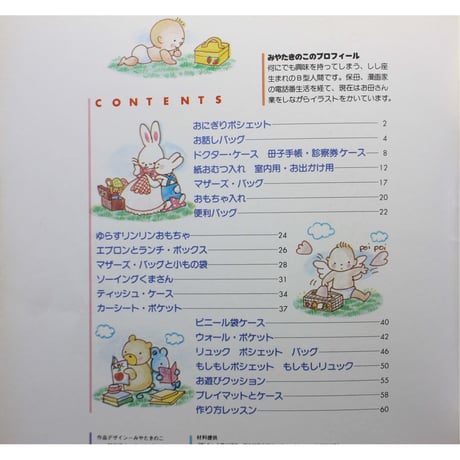 みやたきのこのプロフィール
何にでも興味を持ってしまう、しし座
生まれのB型人間です。保田、漫画家
の電話番生活を経て、現在はお母さん
業をしながらイラストをかいています。
CONTENTS
おにぎりポシェット 2
お話しバッグ 4
ドクター・ケース 母子手帳・診察券ケース 8
紙おむつ入れ 室内用・お出かけ用 12
マザーズ・バッグ 17
おもちゃ入れ 20
便利バッグ 22
ゆらすリンリンおもちゃ 24
エプロンとランチ・ボックス 26
マザーズ・バッグと小もの袋 28
ソーイングくまさん 31
ティッシュ・ケース 34
カーシート・ポケット 37
poi poi
ビニール袋ケース 40
ウォール・ポケット 42
リュック ポシェット バッグ 46
もしもしポシェット もしもしリュック 50
お遊びクッション 55
プレイマットとケース 58
作り方レッスン 60
作品デザイン―みやたきのこ
材料提供